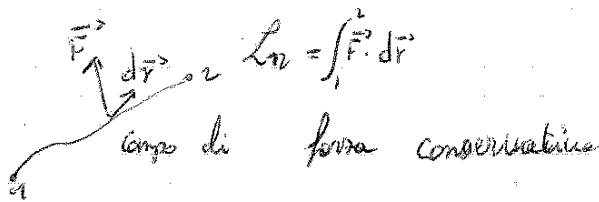 F⃗
dr⃗
2
L₁₂ = ∫₁² F⃗ · dr⃗
campo di forza conservativa
1